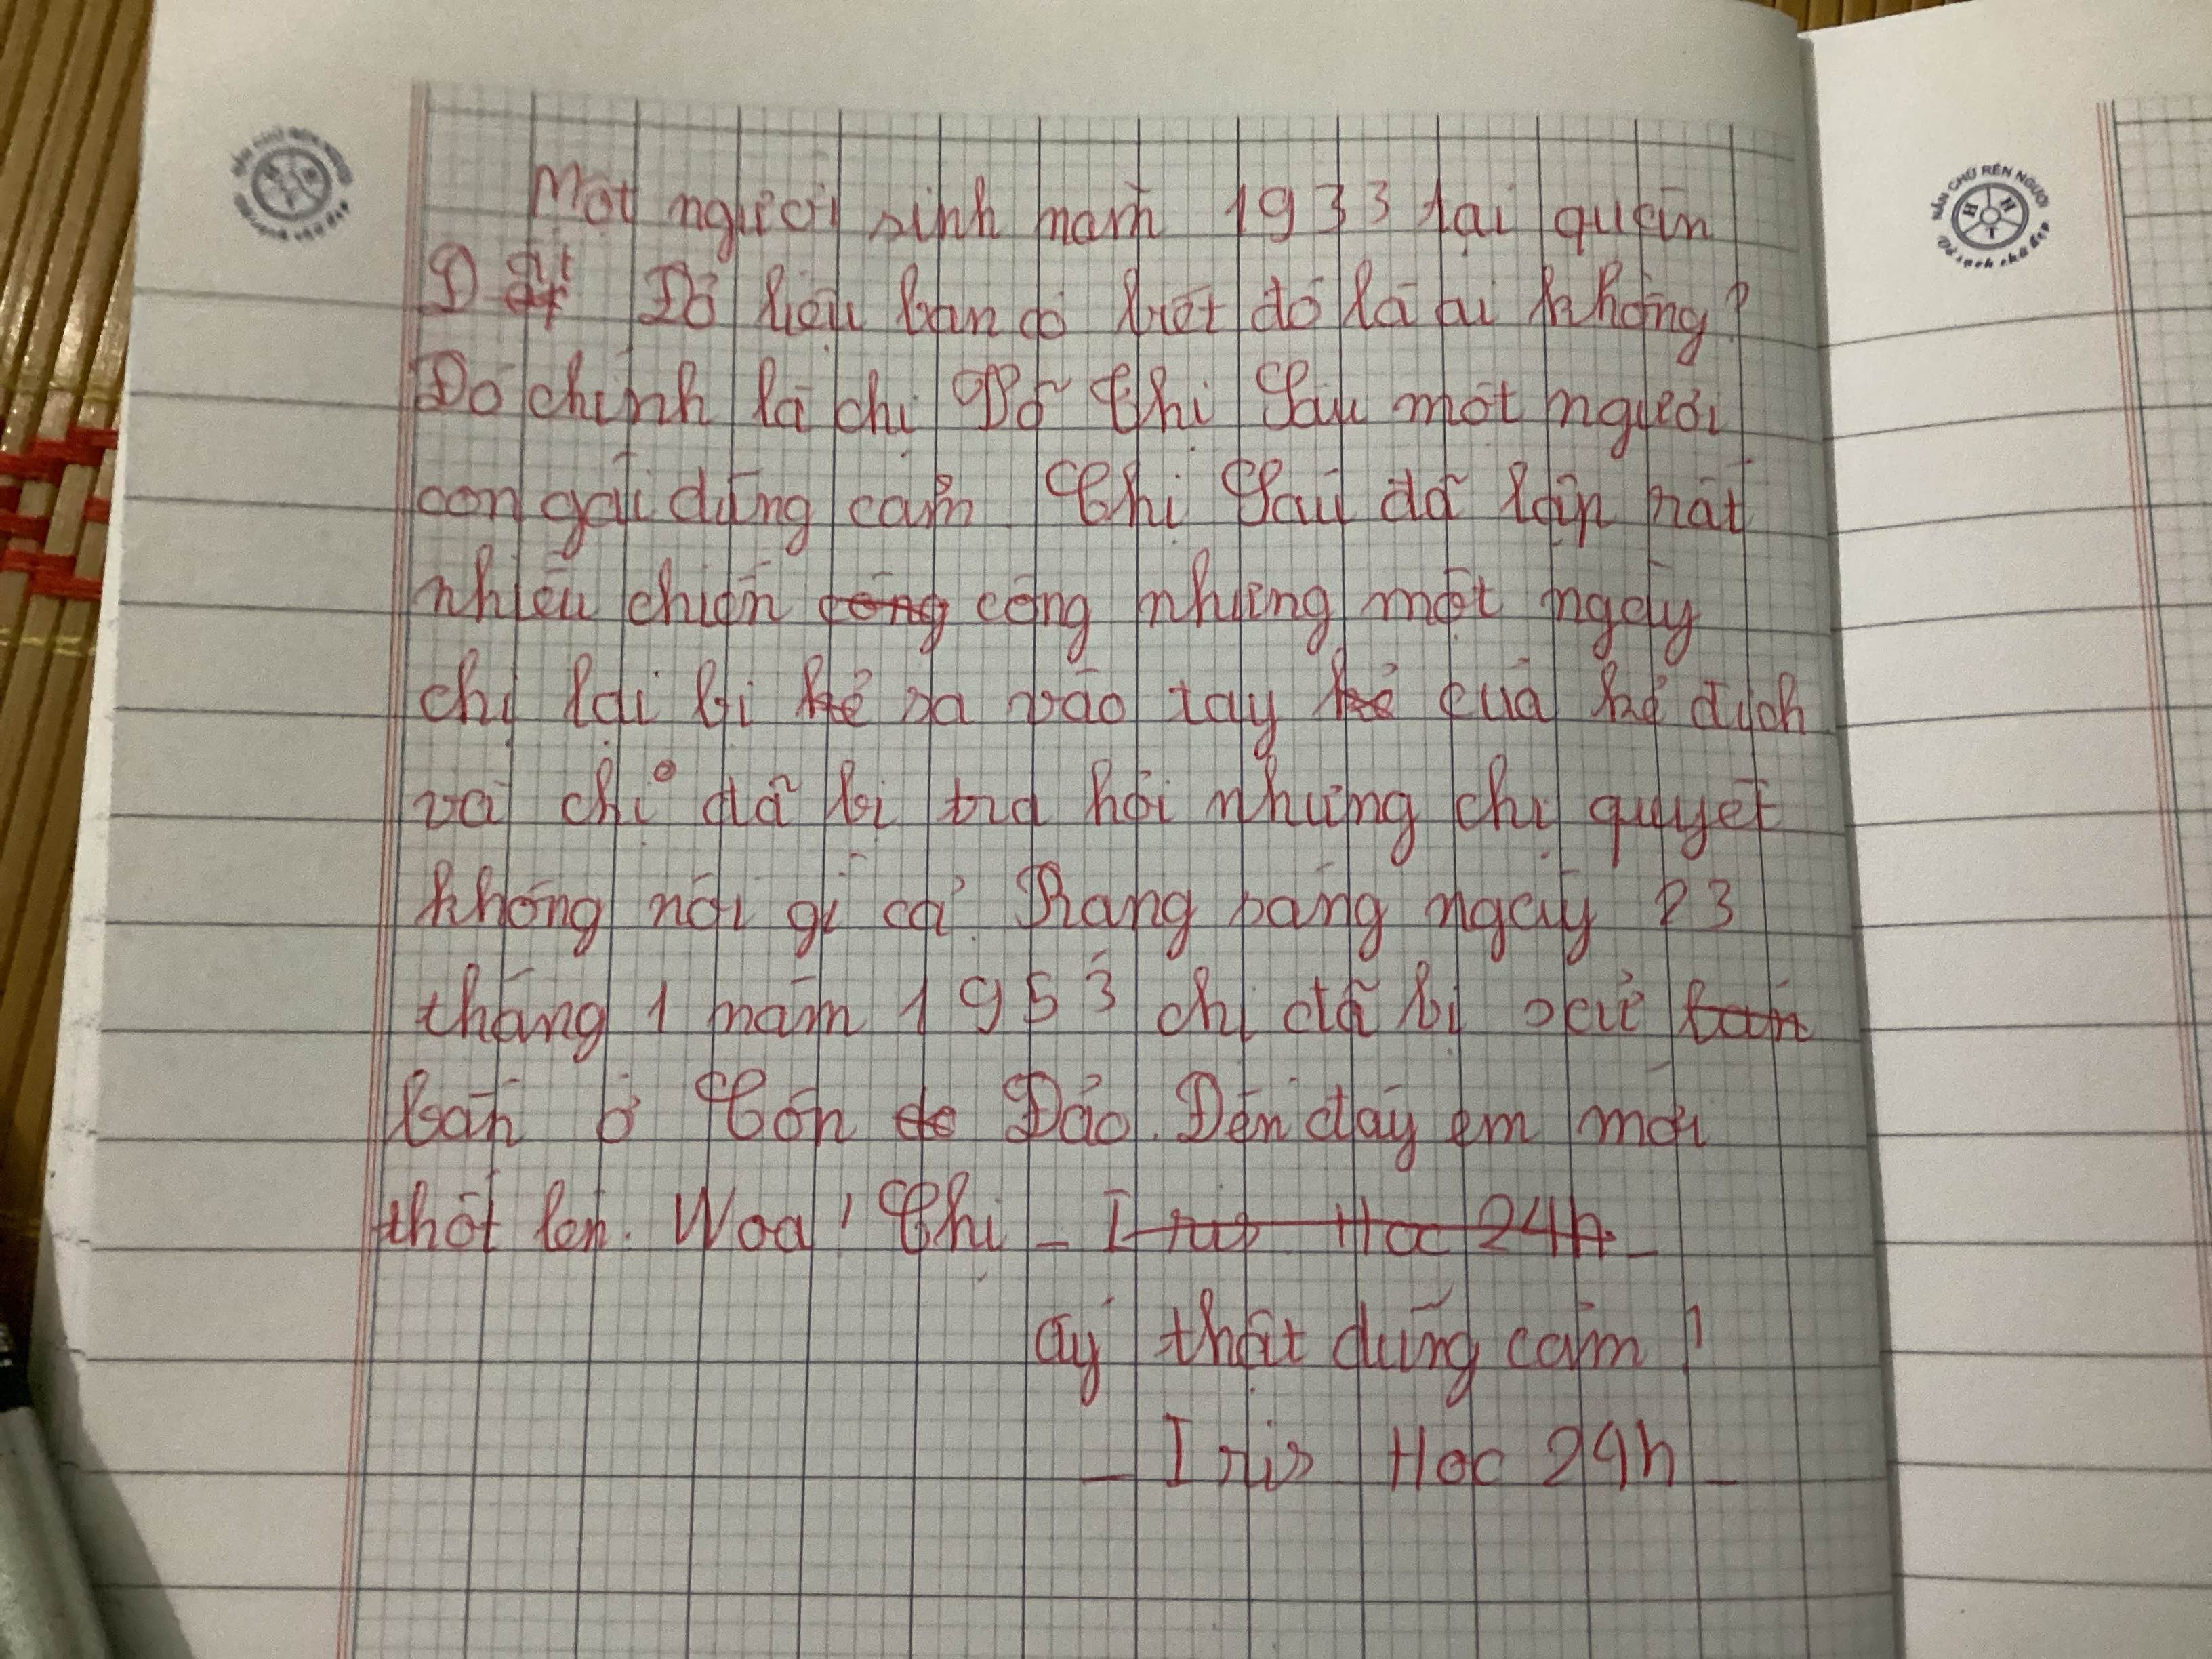 Một người sinh năm 1933 tại quận
Đất Đỏ liệu bạn có biết đó là ai không?
Đó chính là chị Võ Thị Sáu một người
con gái dũng cảm Chị Sáu đã lập rất
nhiều chiến công công nhưng một ngày
chị lại bị kẻ sa vào tay kẻ của kẻ địch
và chị đã bị tra hỏi nhưng chị quyết
không nói gì cả. Rạng sáng ngày 23
tháng 1 năm 1953 chị đã bị xử bắn
bắn ở Côn đả Đảo. Đến đây em mới
thốt lên. Woa! Chị - Iris Học 24h. -
ấy thật dũng cảm!
- Iris Học 24h -
NẮN CHỮ RÈN NGƯỜI
H H T
Vở sạch chữ đẹp